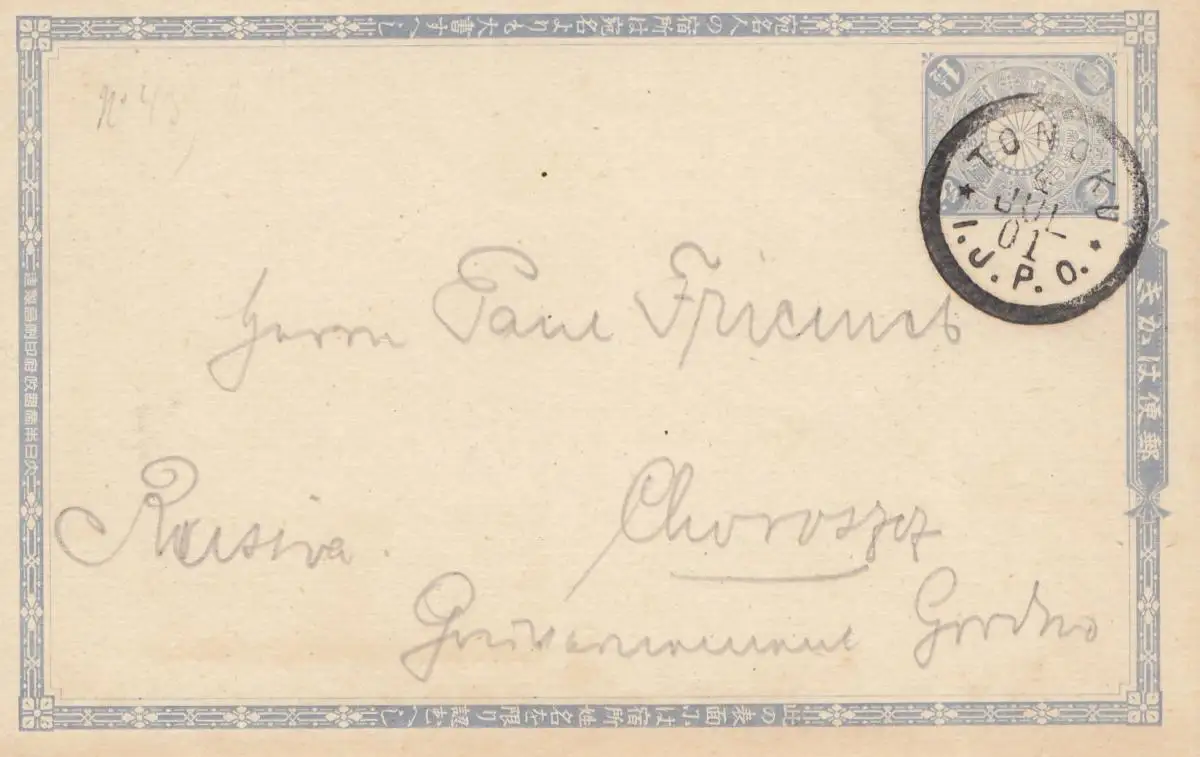 宛名人の宿所は宛名よりも大書すへし
TONGKU
JUL
01
I.J.P.O.
Herrn Paul
郵便はかき
大日本帝國政府印刷局製造
Russia.
Choroszcz
Gouvernement Grodno
此の表面には宿所姓名を限り認むへし